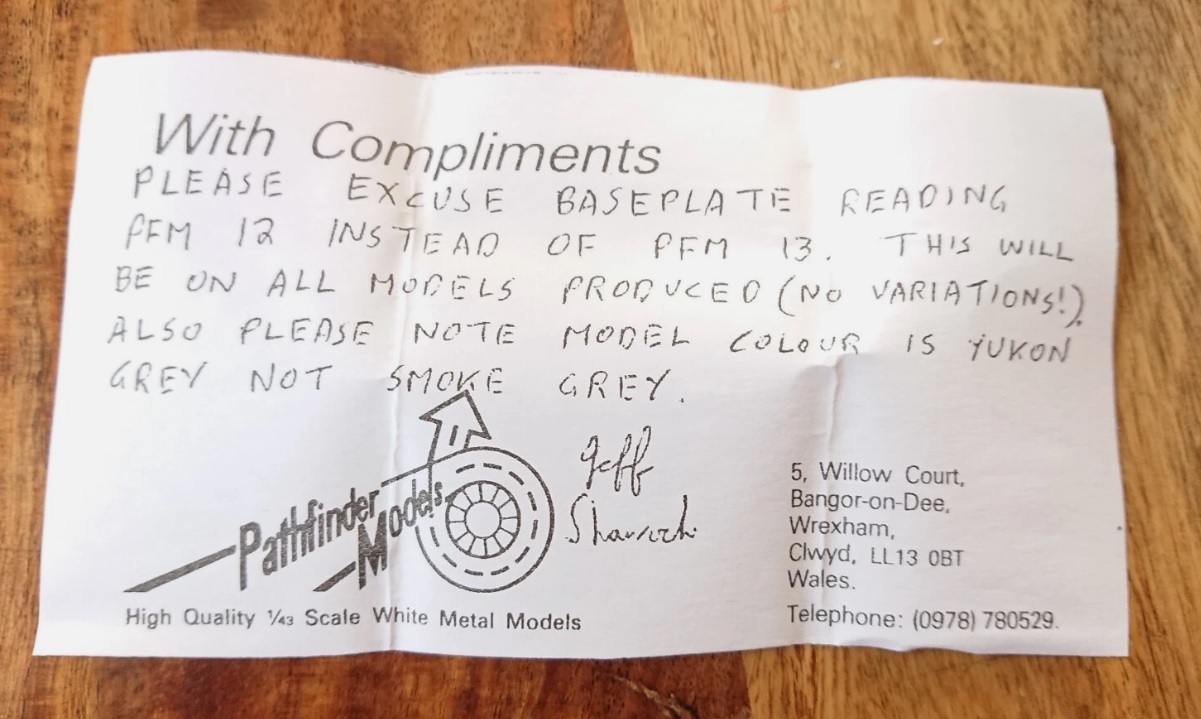 With Compliments
PLEASE EXCUSE BASEPLATE READING
PFM 12 INSTEAD OF PFM 13. THIS WILL
BE ON ALL MODELS PRODUCED (NO VARIATIONS!).
ALSO PLEASE NOTE MODEL COLOUR IS YUKON
GREY NOT SMOKE GREY.
Geff
Pathfinder
Models
High Quality 1/43 Scale White Metal Models
5, Willow Court,
Bangor-on-Dee,
Wrexham,
Clwyd, LL13 0BT
Wales.
Telephone: (0978) 780529.